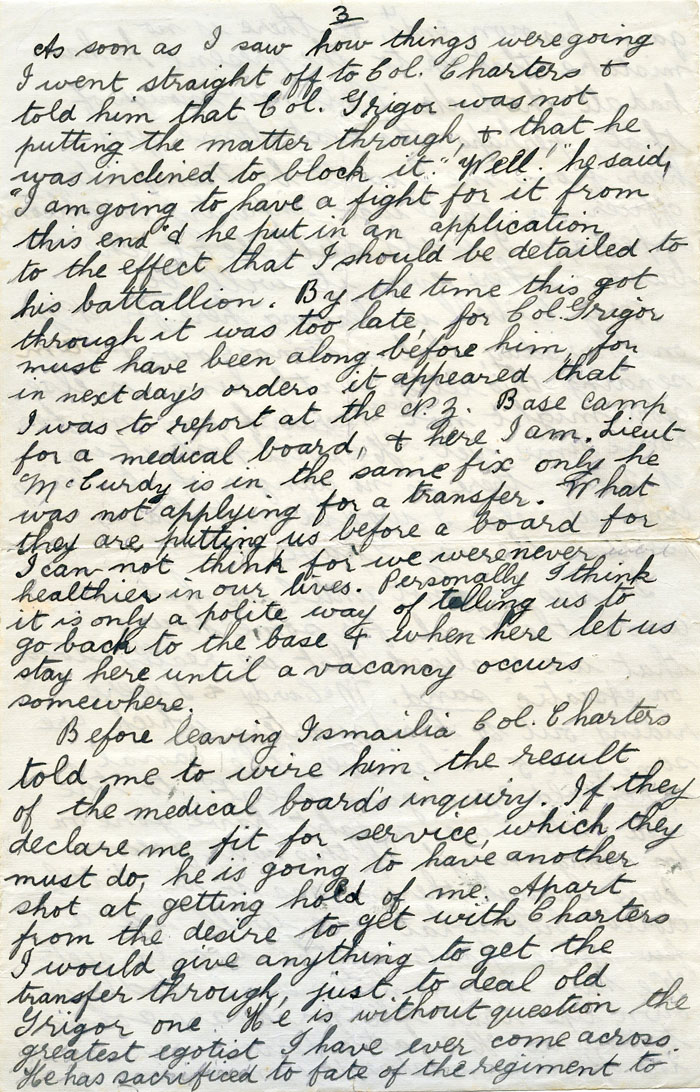 3
As soon as I saw how things were going
I went straight off to Col. Charters &
told him that Col. Grigor was not
putting the matter through, & that he
was inclined to block it." "Well!" he said,
"I am going to have a fight for it from
this end" & he put in an application
to the effect that I should be detailed to
his battallion. By the time this got
through it was too late, for Col. Grigor
must have been along before him, for
in next day's orders it appeared that
I was to report at the N.Z. Base Camp
for a medical board, & here I am. Lieut
McCurdy is in the same fix only he
was not applying for a transfer. What
they are putting us before a board for
I can not think for we were never
healthier in our lives. Personally I think
it is only a polite way of telling us to
go back to the base & when here let us
stay here until a vacancy occurs
somewhere.
Before leaving Ismailia Col. Charters
told me to wire him the result
of the medical board's inquiry. If they
declare me fit for service, which they
must do, he is going to have another
shot at getting hold of me. Apart
from the desire to get with Charters
I would give anything to get the
transfer through, just to deal old
Grigor one. He is without question the
greatest egotist I have ever come across.
He has sacrificed to fate of the regiment to